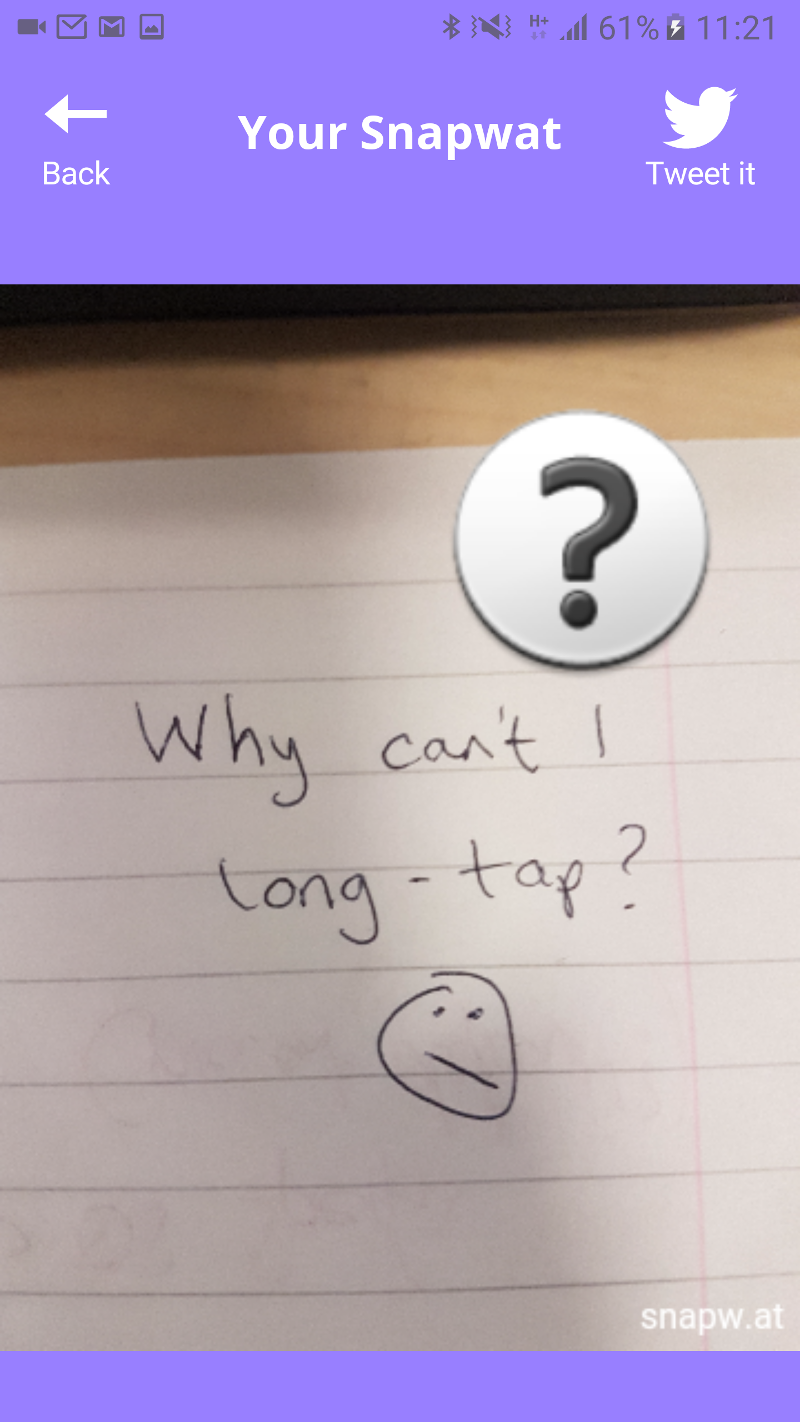 61% 11:21
Your Snapwat
Back
Tweet it
?
Why can't I
long-tap?
snapw.at